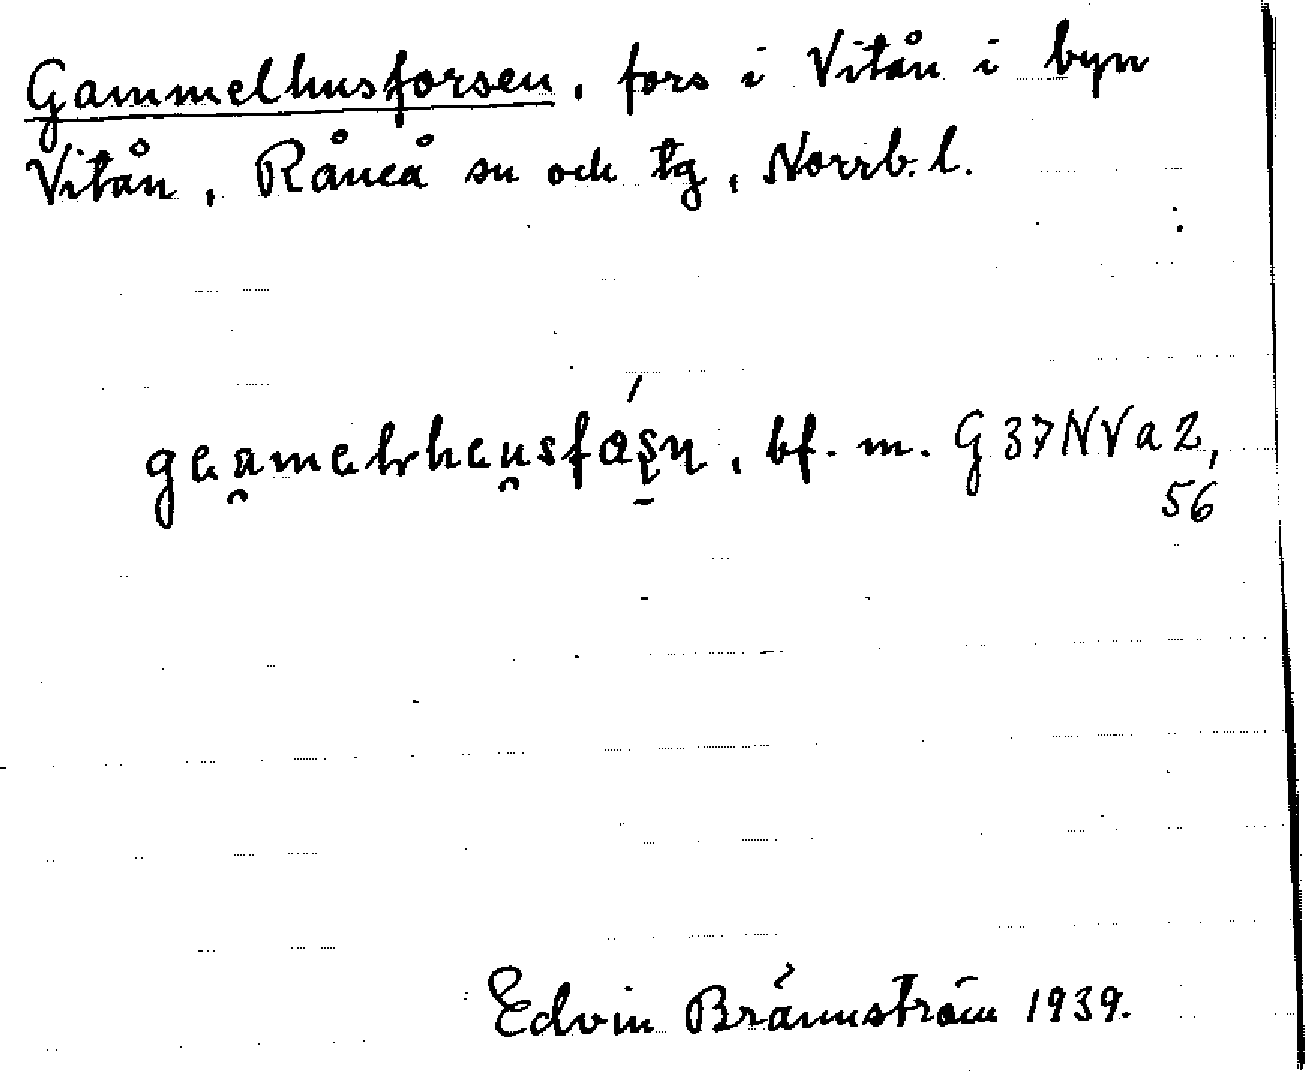 Gammelhusforsen, fors i Vitån i byn
Vitån, Råneå sn och tg, Norrb. l.
bf. m. G 37 N V a 2,
56
Edvin Brännström 1939.